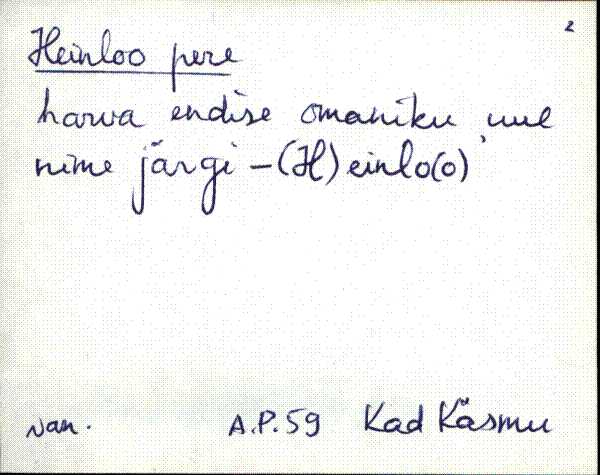 2
Heinloo pere
harva endise omaniku uue
nime järgi - (H)einlo(o)
Nan. A.P.59 Kad Käsmu